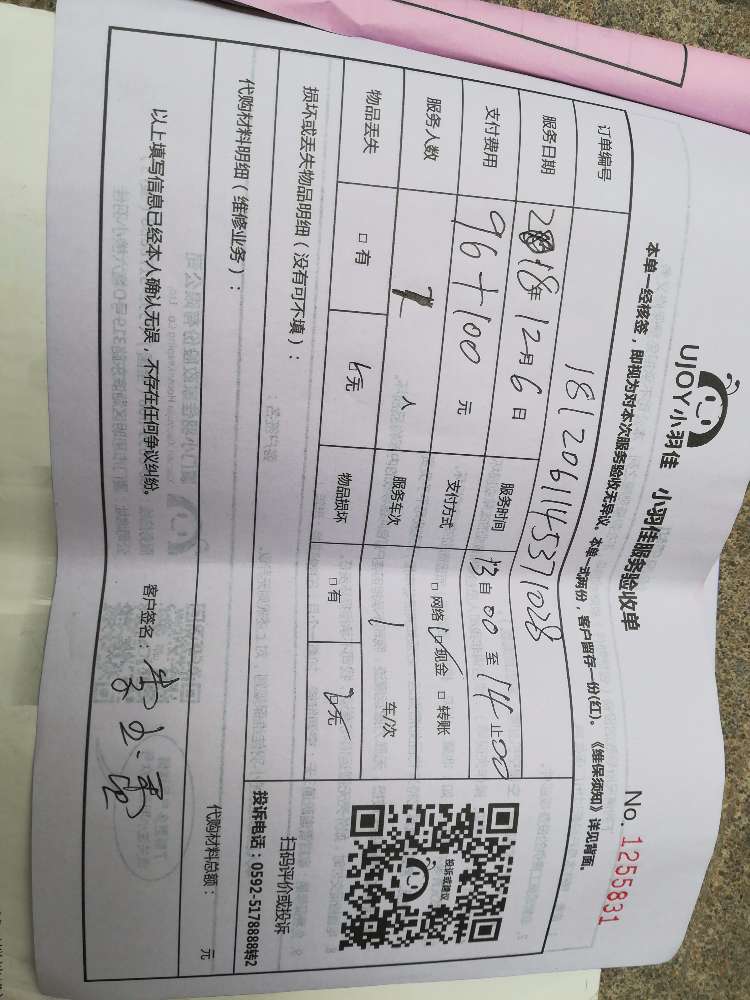 UJOY小羽佳 小羽佳服务验收单 No. 1255831
本单一经核签，即视为对本次服务验收无异议。本单一式两份，客户留存一份(红)。《维保须知》详见背面。
订单编号 1812061145371028
服务日期 2018年12月6日 服务时间 13自00至14止00
支付费用 96+100元 支付方式 □网络 □现金 □转账
服务人数 人 服务车次 1 车/次
物品丢失 □有 □无 物品损坏 □有 □无
投诉或建议
扫码评价或投诉
投诉电话：0592-5178888转2
损坏或丢失物品明细（没有可不填）：
代购材料明细（维修业务）：
代购材料总额： 元
以上填写信息已经本人确认无误，不存在任何争议纠纷。 客户签名：